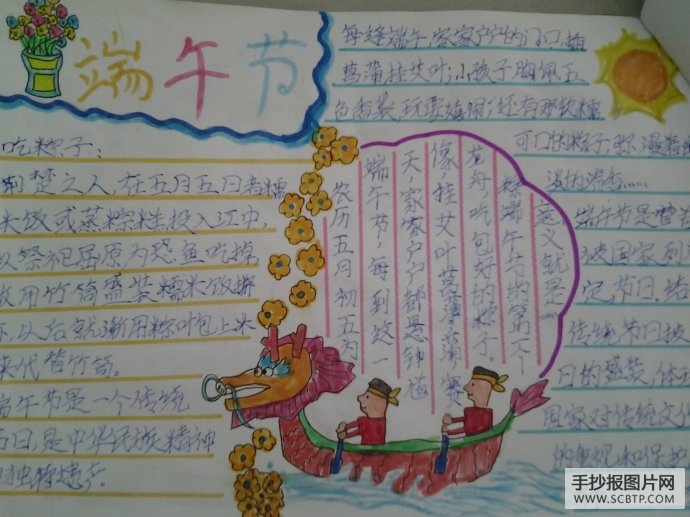 端午节
每逢端午,家家户户的门口,插
菖蒲挂艾叶;小孩子胸佩五
色香袋,玩耍嬉闹;还有那软糯
可口的粽子,弥漫着
淡的清香……
吃粽子:
荆楚之人,在五月五日煮糯
米饭或蒸粽糕投入江中,
以祭祀屈原为恐鱼吃掉
故用竹筒盛装糯米饭掷
以后就渐用粽叶包上米
来代替竹筒。
端午节是一个传统
节日,是中华民族精神
独特
农历五月初五为
端午节,每到这一
天,家家户户都悬钟馗
像,挂艾叶菖蒲,赛
龙舟,吃包好的粽子。
端午节的第一个
意义就是……
端午节是
被国家列
定节日,
传统节日
日的盛装,体
国家对传统文化
的重视和保护
手抄报图片网
WWW.SCBTP.COM